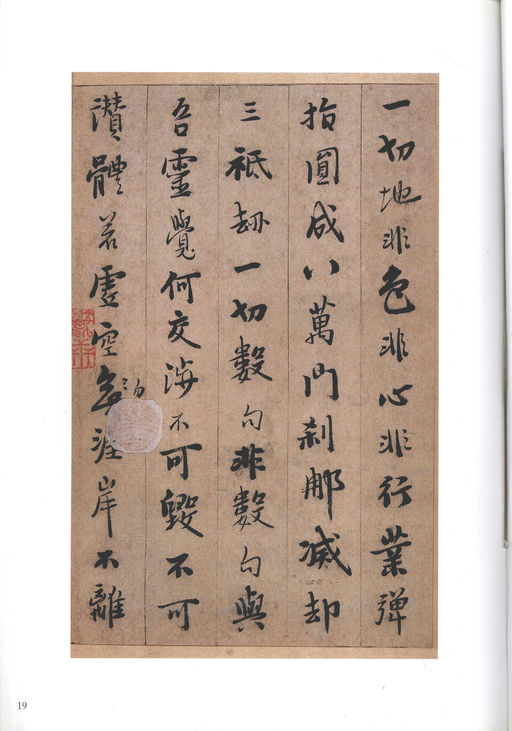 一切地非色非心非行業彈
指圓成八萬門刹那滅却
三祇劫一切數句非數句與
吾靈覺何交涉不可毀不可
讚體若虛空涯岸不離
勿
19